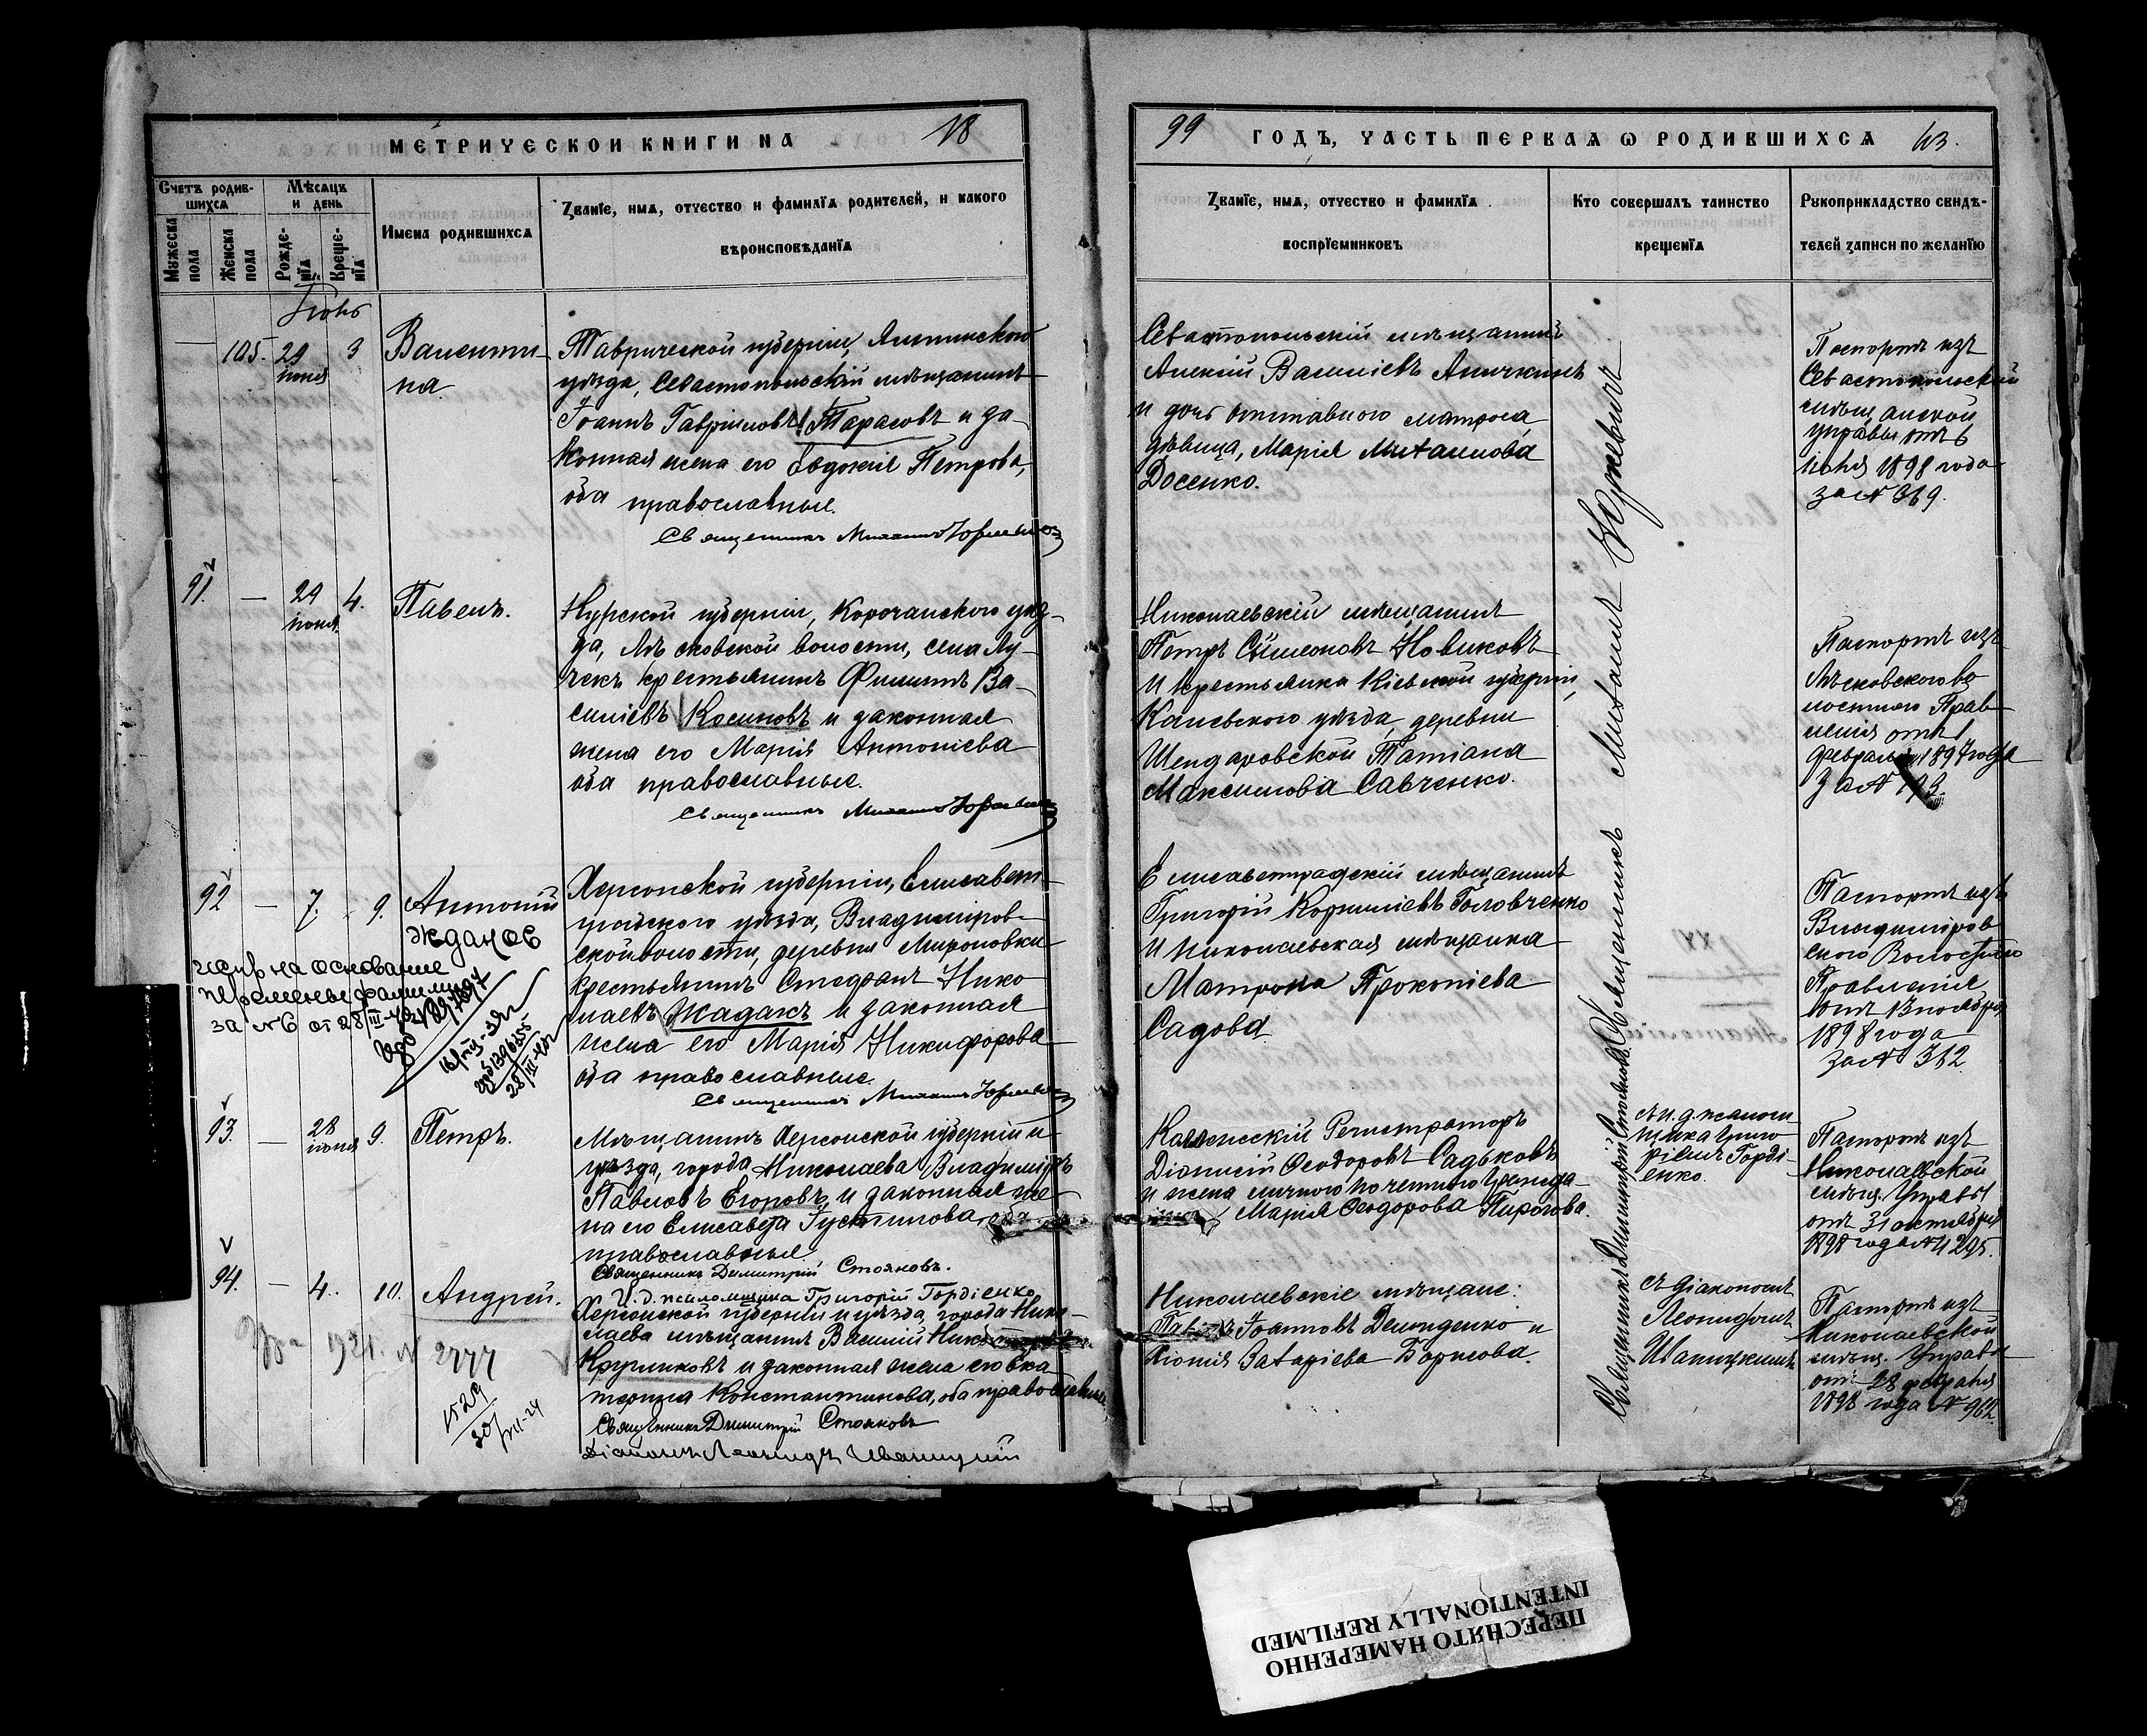 МЕТРИЧЕСКОЙ КНИГИ НА 18
Счетъ родив-
шихся
Мѣсяцъ
и день
Мужеска
пола
Женска
пола
Рожде-
нія
Креще-
нія
Имена родившихся
Званіе, имя, отчество и фамилія родителей, и какого
вѣроисповѣданія
105. 29 3
іюня
Валенти-
на.
Таврической губерніи, Ялтинскаго
уѣзда, Севастопольскій мѣщанинъ
Іоаннъ Гавріиловъ Тарасовъ и за-
конная жена его Евдокія Петрова,
оба православные.
Священникъ Михаилъ
91. — 29 4.
іюня.
Павелъ.
Курской губерніи, Корочанскаго уѣз-
да, волости, села Лу-
чекъ крестьянинъ Филиппъ Ва-
силіевъ Косиновъ и законная
жена его Марія Антоніева
оба православные.
Священникъ Михаилъ
92 — 7. 9.
Антоній
Жданов
испр на основание
перемены фамилии
за № 6 от 28/III-
16/III-
28/III-
Херсонской губерніи, Елисавет-
градскаго уѣзда, Владиміров-
ской волости, деревни Мироновки
крестьянинъ Стефанъ Нико-
лаевъ Жаданъ и законная
жена его Марія Никифорова
оба православные.
Священникъ Михаилъ
93. — 28 9.
іюня
Петръ.
Мѣщанинъ Херсонской губерніи и
уѣзда, города Николаева Владиміръ
Павловъ Егоровъ и законная же-
на его Елисавета Густинова, оба
православные
Священникъ Димитрій Стояновъ.
И. д. псаломщика Григорій Гордіенко
94. — 4. 10.
Андрей.
921. № 2777
1529
20/VII-24
Херсонской губерніи и уѣзда, города Нико-
лаева мѣщанинъ Василій
и законная жена его Ека-
терина Константинова, оба православные
Священникъ Димитрій Стояновъ
Діаконъ Леонидъ Иваницкій
99 ГОДЪ, ЧАСТЬ ПЕРВАЯ О РОДИВШИХСЯ 43.
Званіе, имя, отчество и фамилія
воспріемниковъ
Кто совершалъ таинство
крещенія
Рукоприкладство свидѣ-
телей записи по желанію
Севастопольскій мѣщанинъ
Алексій Василіевъ Аничкинъ
и дочь отставного матроса
дѣвица, Марія Михаилова
Досенко.
Паспортъ изъ
Севастопольской
мѣщанской
управы отъ 6
іюня 1898 года
за № 369.
Николаевскій мѣщанинъ
Петръ Сѵмеоновъ Новиковъ
и крестьянка Кіевской губерніи,
Каневскаго уѣзда, деревни
Шендаровской Татіана
Максимова Савченко.
Паспортъ изъ
лостного Прав-
ленія отъ 1
февраля 1897 года
за №
Елисаветградскій мѣщанинъ
Григорій Корниліевъ Головченко
и Николаевская мѣщанка
Матрона Прокопіева
Садова
Паспортъ изъ
Владиміров-
скаго Волостного
Правленія
отъ 13 ноября
1898 года
за № 312
Коллежскій Регистраторъ
Діонисій Ѳеодоровъ Садьковъ
и жена личного почетного гражда-
нина Марія Ѳеодорова Пирогова.
съ и. д. псалом-
щика Григо-
ріемъ Горді-
енко.
Паспортъ изъ
Николаевской
мѣщ. Управы
отъ 31 октября
1898 года № 4295.
Николаевскіе мѣщане:
Іоанновъ Демиденко и
Захаріева Борисова.
съ діакономъ
Леонидомъ
Иваницкимъ
Паспортъ изъ
Николаевской
мѣщ. Управы
отъ 28 февраля
1898 года № 962
Священникъ Димитрій Стояновъ. Священникъ Михаилъ
ПЕРЕСНЯТО НАМЕРЕННО
INTENTIONALLY REFILMED